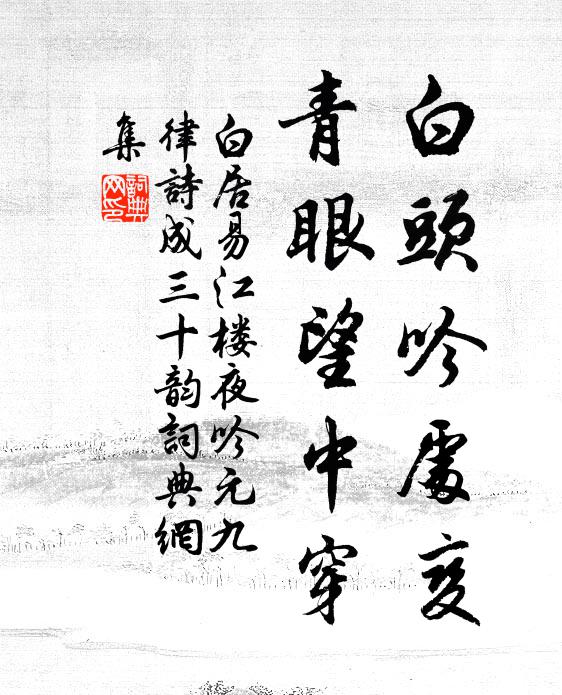 白頭吟處變
青眼望中穿
白居易江楼夜吟元九
律詩成三十韵詞典網
集
詞典
网印